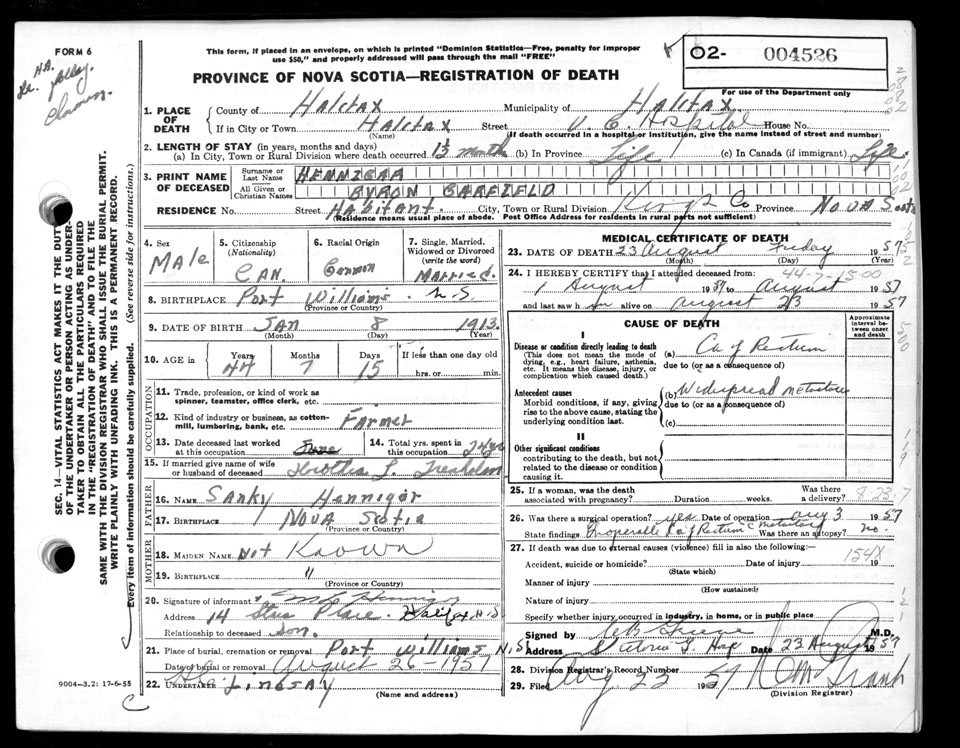 FORM 6
This form, if placed in an envelope, on which is printed "Dominion Statistics—Free, penalty for improper
use $50," and properly addressed will pass through the mail "FREE"
02- 004526
PROVINCE OF NOVA SCOTIA—REGISTRATION OF DEATH
For use of the Department only
1. PLACE OF DEATH
County of Halifax Municipality of Halifax
If in City or Town Halifax Street V. G. Hospital House No.
(Name) (If death occurred in a hospital or institution, give the name instead of street and number)
2. LENGTH OF STAY (in years, months and days)
(a) In City, Town or Rural Division where death occurred 1½ month (b) In Province Life (c) In Canada (if immigrant) Life
3. PRINT NAME OF DECEASED
Surname or Last Name HENNIGAR
All Given or Christian Names BYRON GARFIELD
RESIDENCE No. Street Habitant. City, Town or Rural Division Kings Co Province Nova Scotia
(Residence means usual place of abode. Post Office Address for residents in rural parts not sufficient)
4. Sex Male
5. Citizenship (Nationality) Can.
6. Racial Origin German
7. Single, Married, Widowed or Divorced (write the word) Married.
8. BIRTHPLACE Port Williams N.S.
(Province or Country)
9. DATE OF BIRTH Jan 8 1913
(Month) (Day) (Year)
10. AGE in Years 44 Months 7 Days 15 If less than one day old hrs. or min.
OCCUPATION
11. Trade, profession, or kind of work as spinner, teamster, office clerk, etc.
12. Kind of industry or business, as cotton-mill, lumbering, bank, etc. Farmer
13. Date deceased last worked at this occupation June
14. Total yrs. spent in this occupation
15. If married give name of wife or husband of deceased L.
FATHER
16. NAME Sanky Hennigar
17. BIRTHPLACE Nova Scotia
(Province or Country)
MOTHER
18. MAIDEN NAME Not Known
19. BIRTHPLACE "
(Province or Country)
20. Signature of informant Hennigar
Address 14 Place. Halifax N.S
Relationship to deceased Son.
21. Place of burial, cremation or removal Port Williams N.S
Date of burial or removal August 26-1957
22. UNDERTAKER Lindsay
(Name and address)
MEDICAL CERTIFICATE OF DEATH
23. DATE OF DEATH 23 August Friday 1957
(Month) (Day) (Year)
44-7-15-00
24. I HEREBY CERTIFY that I attended deceased from:
1 August 1957 to August 1957
and last saw h im alive on August 23 1957
CAUSE OF DEATH
Approximate interval between onset and death
I
Disease or condition directly leading to death
(This does not mean the mode of dying, e.g., heart failure, asthenia, etc. It means the disease, injury, or complication which caused death.)
(a) Ca of Rectum
due to (or as a consequence of)
Antecedent causes
Morbid conditions, if any, giving rise to the above cause, stating the underlying condition last.
(b) Widespread metastases
due to (or as a consequence of)
(c)
II
Other significant conditions
contributing to the death, but not related to the disease or condition causing it.
25. If a woman, was the death associated with pregnancy? Duration weeks. Was there a delivery?
26. Was there a surgical operation? yes Date of operation Aug 3 1957
State findings Inoperable Ca of Rectum c metastases Was there an autopsy? no.
27. If death was due to external causes (violence) fill in also the following:—
154X
Accident, suicide or homicide? Date of injury 19
(State which)
Manner of injury
(How sustained)
Nature of injury
Specify whether injury occurred in industry, in home, or in public place
Signed by M.D.
Address Victoria G. Hosp Date 23 August 1957
28. Division Registrar's Record Number
29. Filed Aug 1957
(Division Registrar)
SEC. 14—VITAL STATISTICS ACT MAKES IT THE DUTY
OF THE UNDERTAKER OR PERSON ACTING AS UNDER-
TAKER TO OBTAIN ALL THE PARTICULARS REQUIRED
IN THE "REGISTRATION OF DEATH" AND TO FILE THE
SAME WITH THE DIVISION REGISTRAR WHO SHALL ISSUE THE BURIAL PERMIT.
WRITE PLAINLY WITH UNFADING INK. THIS IS A PERMANENT RECORD.
Every item of information should be carefully supplied. (See reverse side for instructions.)
9004-3.2: 17-6-55